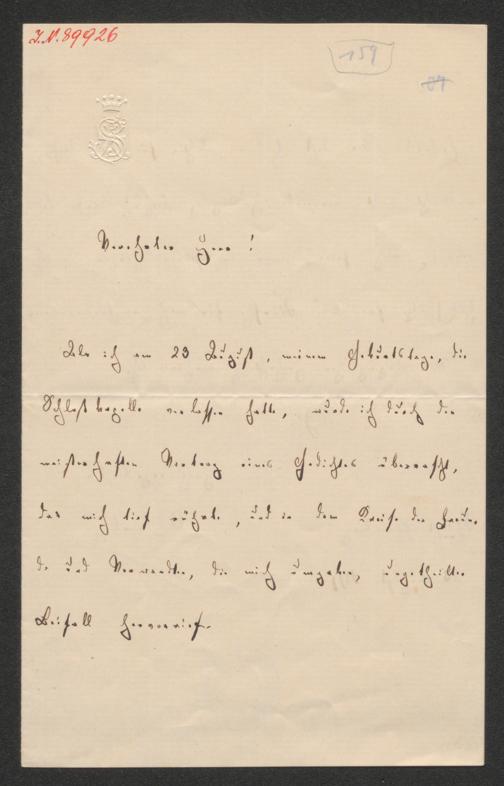 I.N. 89926
159
Verehrter Herr!
Als ich am 23 August, meinem Geburtstage, die
Schloßkapelle verlassen hatte, wurde ich durch den
meisterhaften Vortrag eines Gedichtes überrascht,
das mich tief rührte, und in dem Kreise der Freun-
de und Verwandten, die mich umgaben, ungetheilten
Beifall hervorrief.